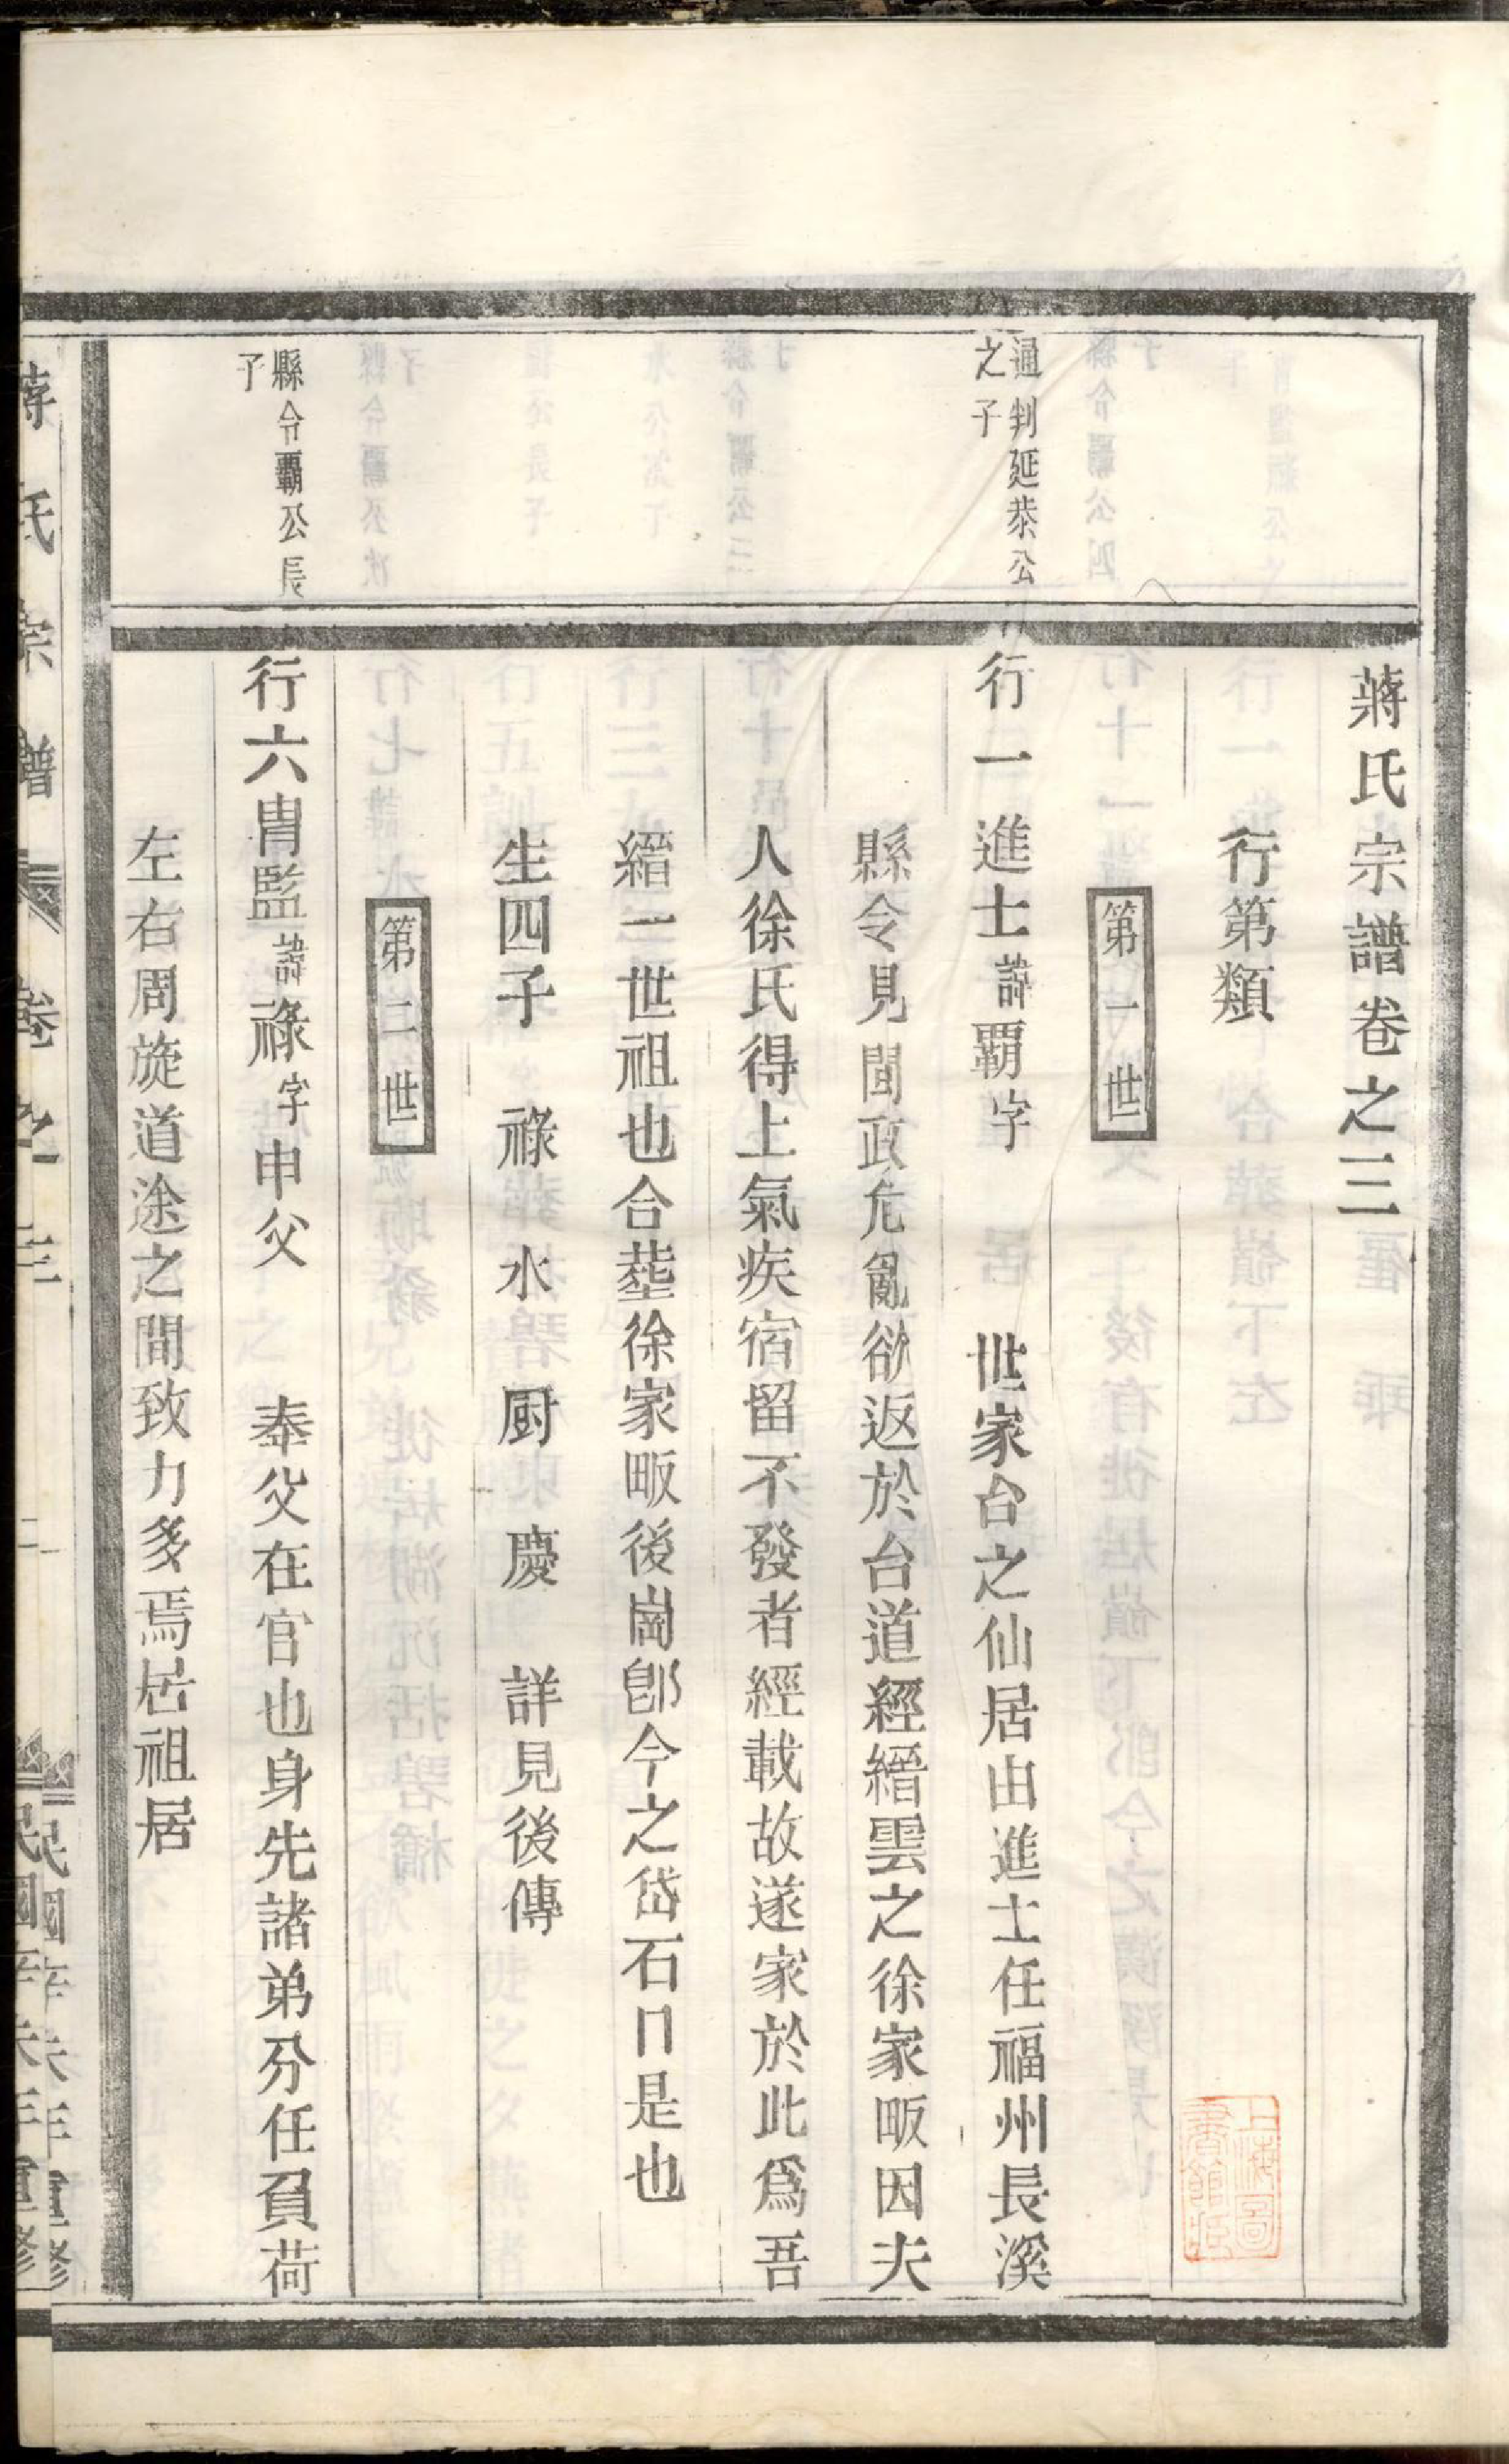 蔣氏宗譜卷之三
行第類
第一世
通判延恭公
之子
行一進士諱覇字　世家台之仙居由進士任福州長溪
縣令見閩政危亂欲返於台道經縉雲之徐家畈因夫
人徐氏得上氣疾宿留不發者經載故遂家於此爲吾
縉一世祖也合塟徐家畈後崗卽今之岱石口是也
生四子　祿　水　厨　慶　詳見後傳
第二世
縣令覇公長
子
行六胄監諱祿字申父　奉父在官也身先諸弟分任負荷
左右周旋道途之間致力多焉居祖居
蔣氏宗譜　卷之三　民國辛未年重修
上海圖書館藏